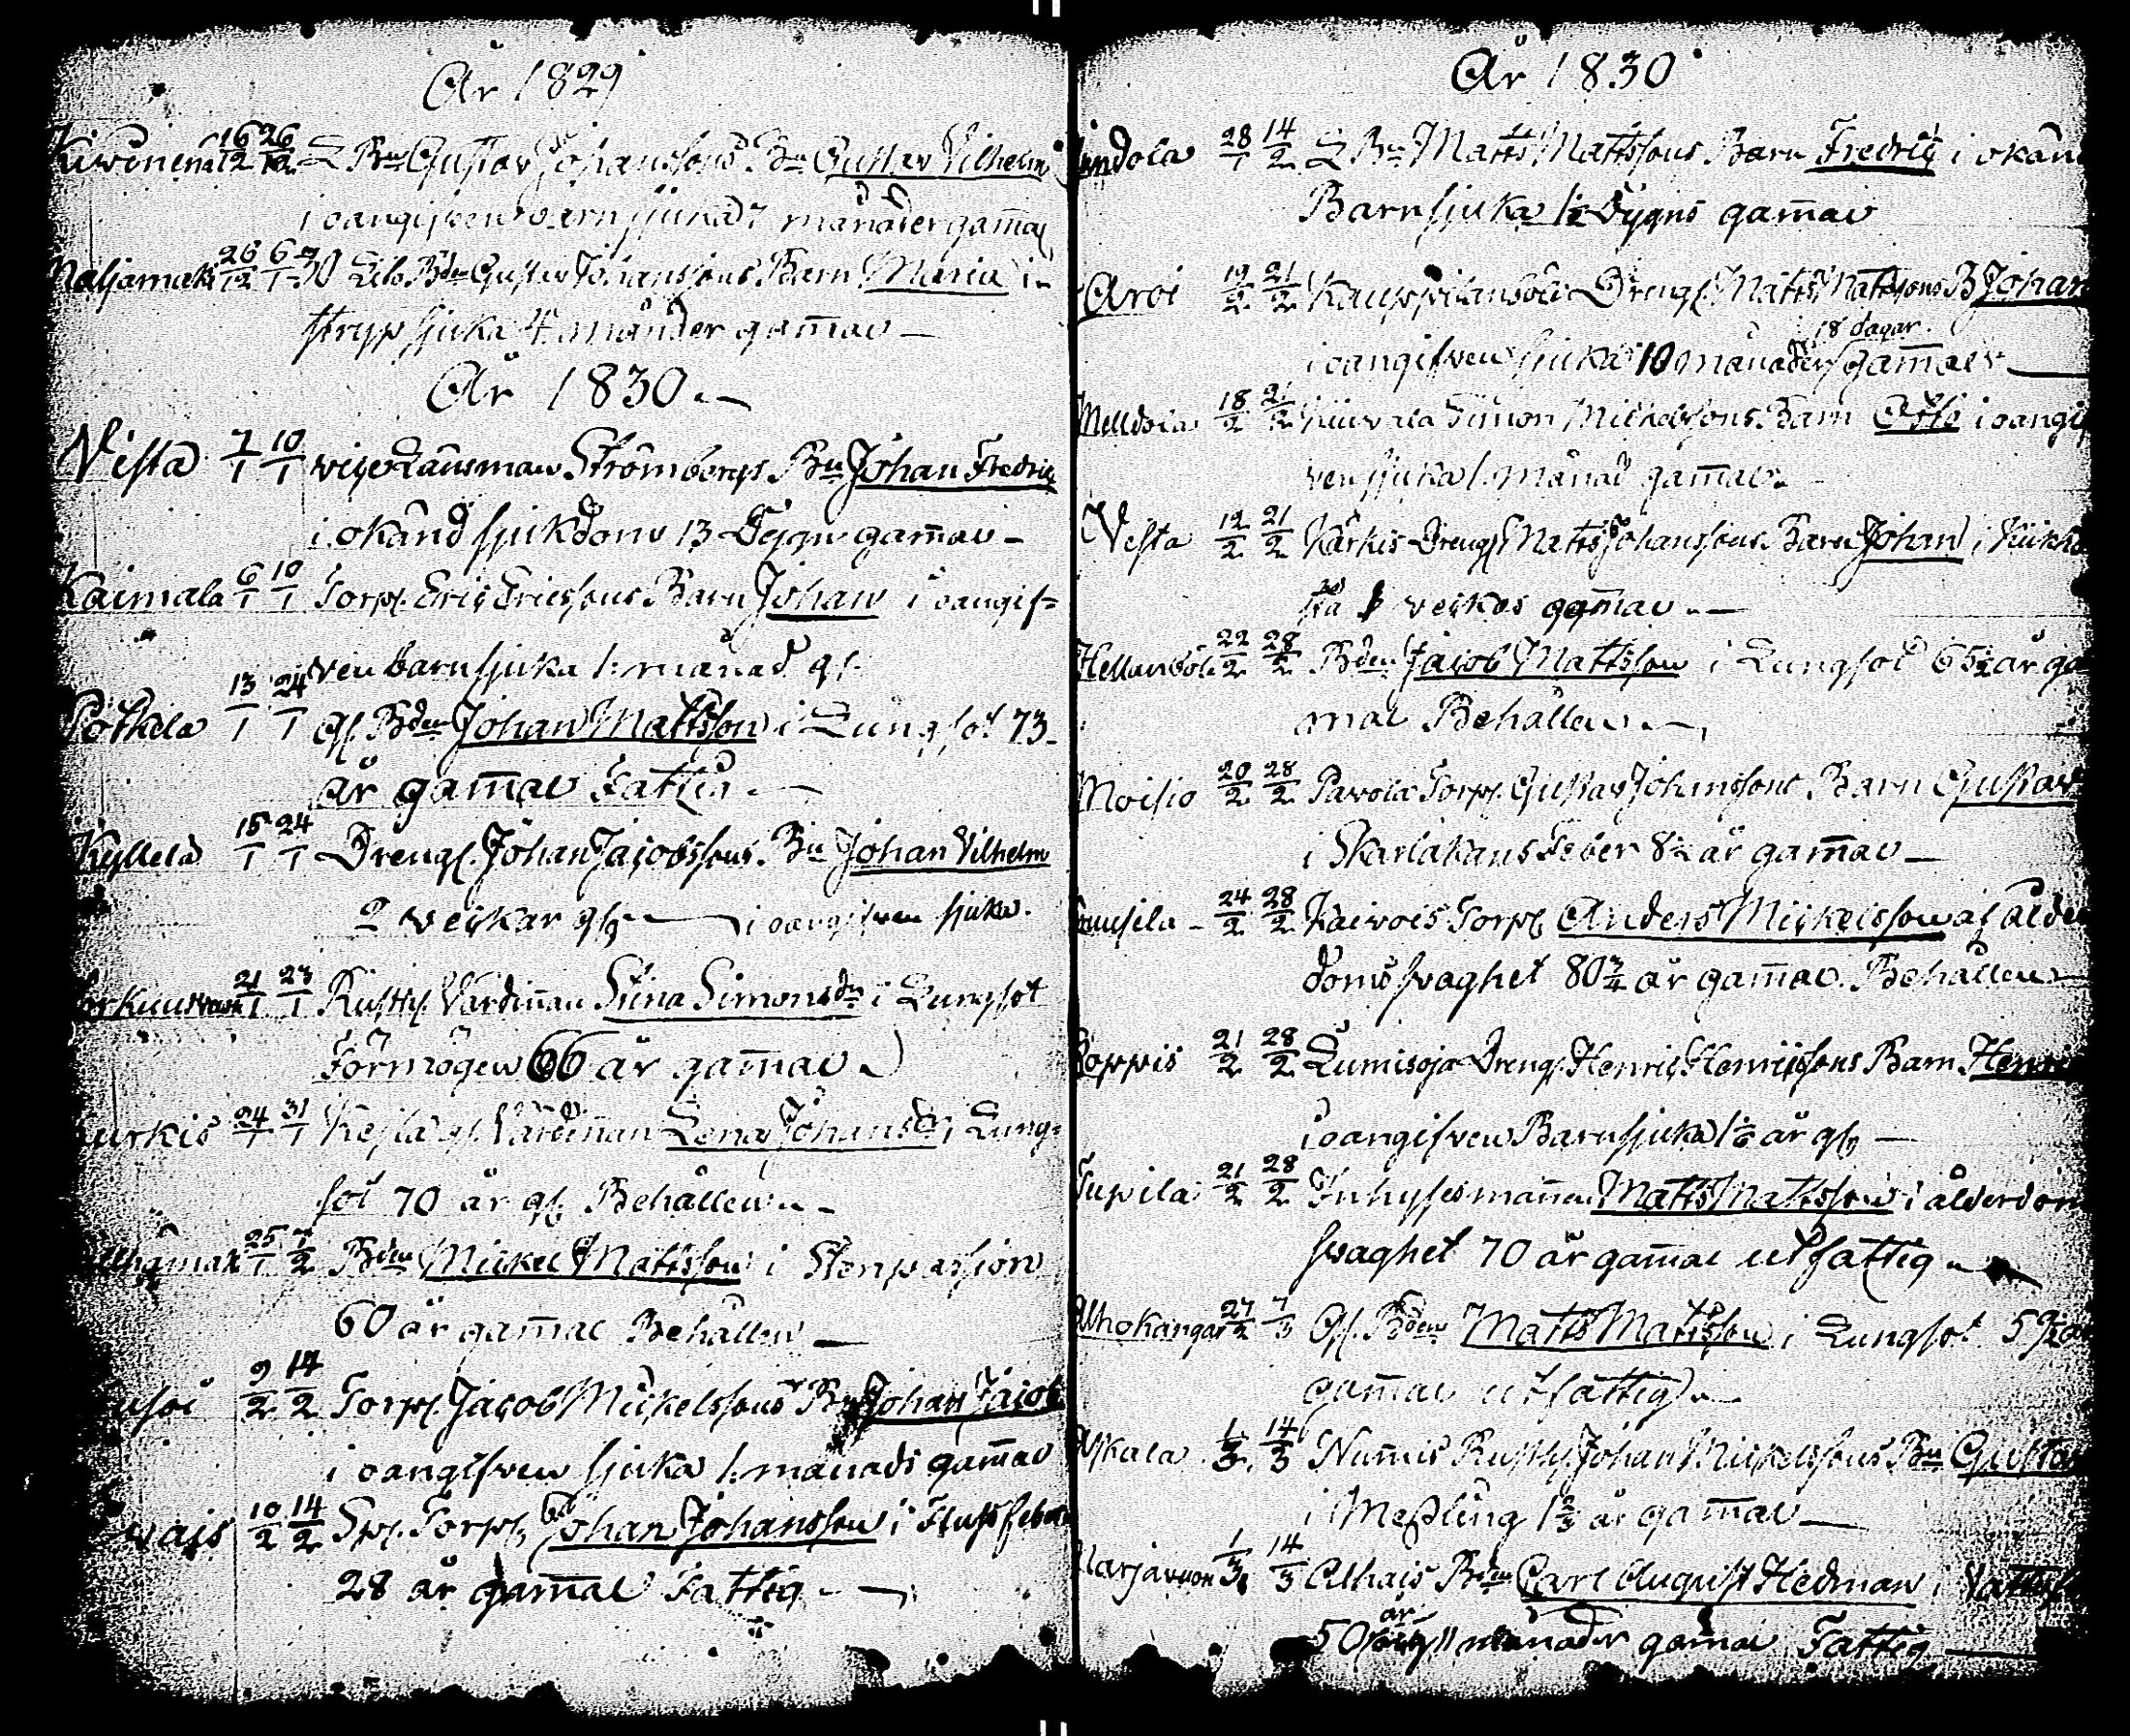 År 1829
Kivinena 16/12 26/12 L. Bn Gustav Johanssons Bn Gustav Vilhelm
i oangifven barnsjuka 7 månader gam̄al
Naljamaki 26/12 6/1 30 Bden Gustav Johanssons Barn Maria i
stryp sjuka 4 månder gam̄al
År 1830
Vesta 7/1 10/1 vice Länsman Strömbergs Bn Johan Fredric
i okänd sjukdom 13 Dygn gam̄al
Kaimala 6/1 10/1 Torp. Eric Ericssons Barn Johan i oangif=
ven barnsjuka 1. månad gl.
Pötkela 13/1 24/1 Gl. Bden Johan Mattsson i Lungsot 73
år gam̄al Fattig
Kyllelä 15/1 24/1 Drengs. Johan Jacobssons Bn Johan Vilhelm
2 veckar gl. i oangifven sjuka.
21/1 23/1 Rusth. Värdin̄an Stina Simonsdr i Lungsot
Förmögen 66 år gam̄al
urkis 24/1 31/1 Kesla gl. Värdin̄an Lena Johansdr i Lung=
sot 70 år gl. Behållen
25/1 7/2 Bden Mickel Mattsson i Stenpassion
60 år gam̄al Behållen
9/2 14/2 Torp. Jacob Mickelssons Bn Johan Jacob
i oangifven sjuka 1. månads gam̄al
vais 10/2 14/2 Spl. Torp. Johan Johansson i Flussfeber
28 år gam̄al Fattig
År 1830
indola 28/1 14/2 L Bn Matts Mattssons Barn Fredric i okän
Barnsjuka 1/2 Dygns gam̄al
Aroi 19/2 21/2 Kauppilansöli Drengs. Matts Mattssons B Johan
18 dagar.
i oangifven sjuka 10 månader gam̄al
Melldola 18/2 21/2 Simon Mickelssons Barn Otto i oangif
ven sjuka 1. månad gam̄al
Vesta 12/2 21/2 Kärkis Drengs Matts Johanssons Barn Johan i Kikho
sta veckos gam̄al
Hellansöli 22/2 28/2 Bden Jacob Mattsson i Lungsot 65 1/2 år ga
mal Behållen
Moisio 20/2 28/2 Pavola Torp. Gustav Johanssons Barn Gustav
i Skarlakans Feber 8 1/2 år gam̄al
24/2 28/2 Kaivois Torp. Anders Mickelsson af ålder
doms svaghet 80 3/4 år gam̄al Behållen
oppis 21/2 28/2 Lumisoja Drengs. Henric Henricssons Barn Henric
i oangifven Barnsjuka 1 1/6 år gl.
Tupila 21/2 28/2 Inhysesman̄en Matts Mattsson i ålderdom
svaghet 70 år gam̄al utfattig
Ahokangas 27/2 7/3 Gl. Bden Matts Mattsson i Lungsot 59 1/2 år
gam̄al utfattig
Yskala 1/3 14/3 Num̄is Rusth. Johan Mickelssons Bn Gustav
i Messling 1 2/3 år gam̄al
Karjavuon 1/3 14/3 Alhais Bden Carl August Hedman i Vattus
år
50 11 månader gam̄al Fattig